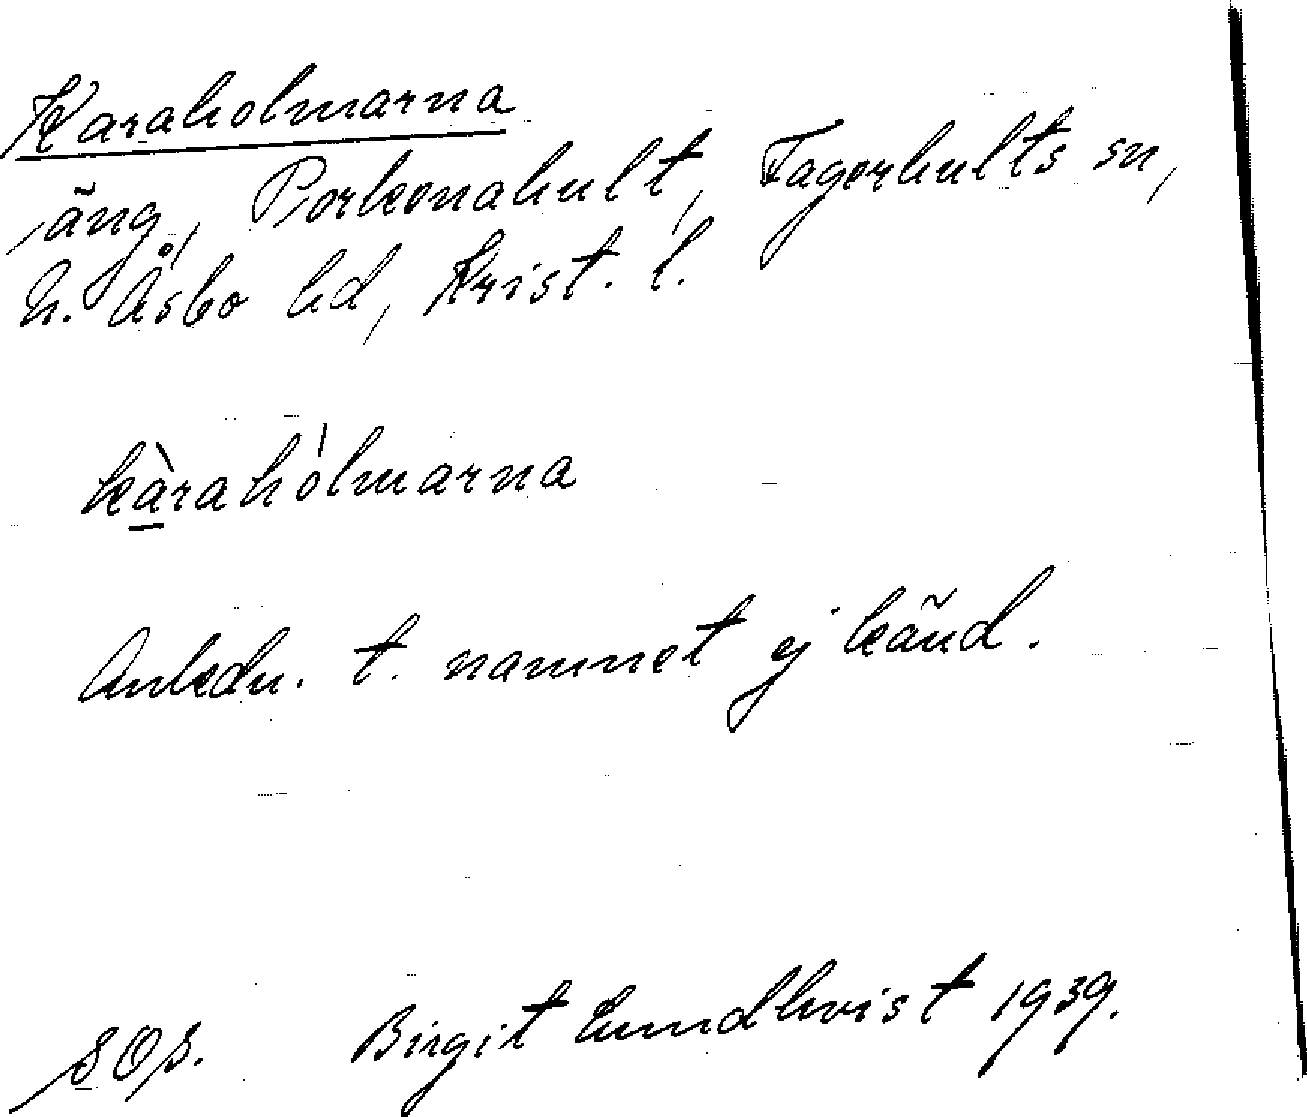 Karaholmarna
äng, Porkenahult, Fagerhults sn,
N. Åsbo hd, Krist. l.
kàrahólmarna
Anledn. t. namnet ej känd.
Birgit Lundkvist 1939.